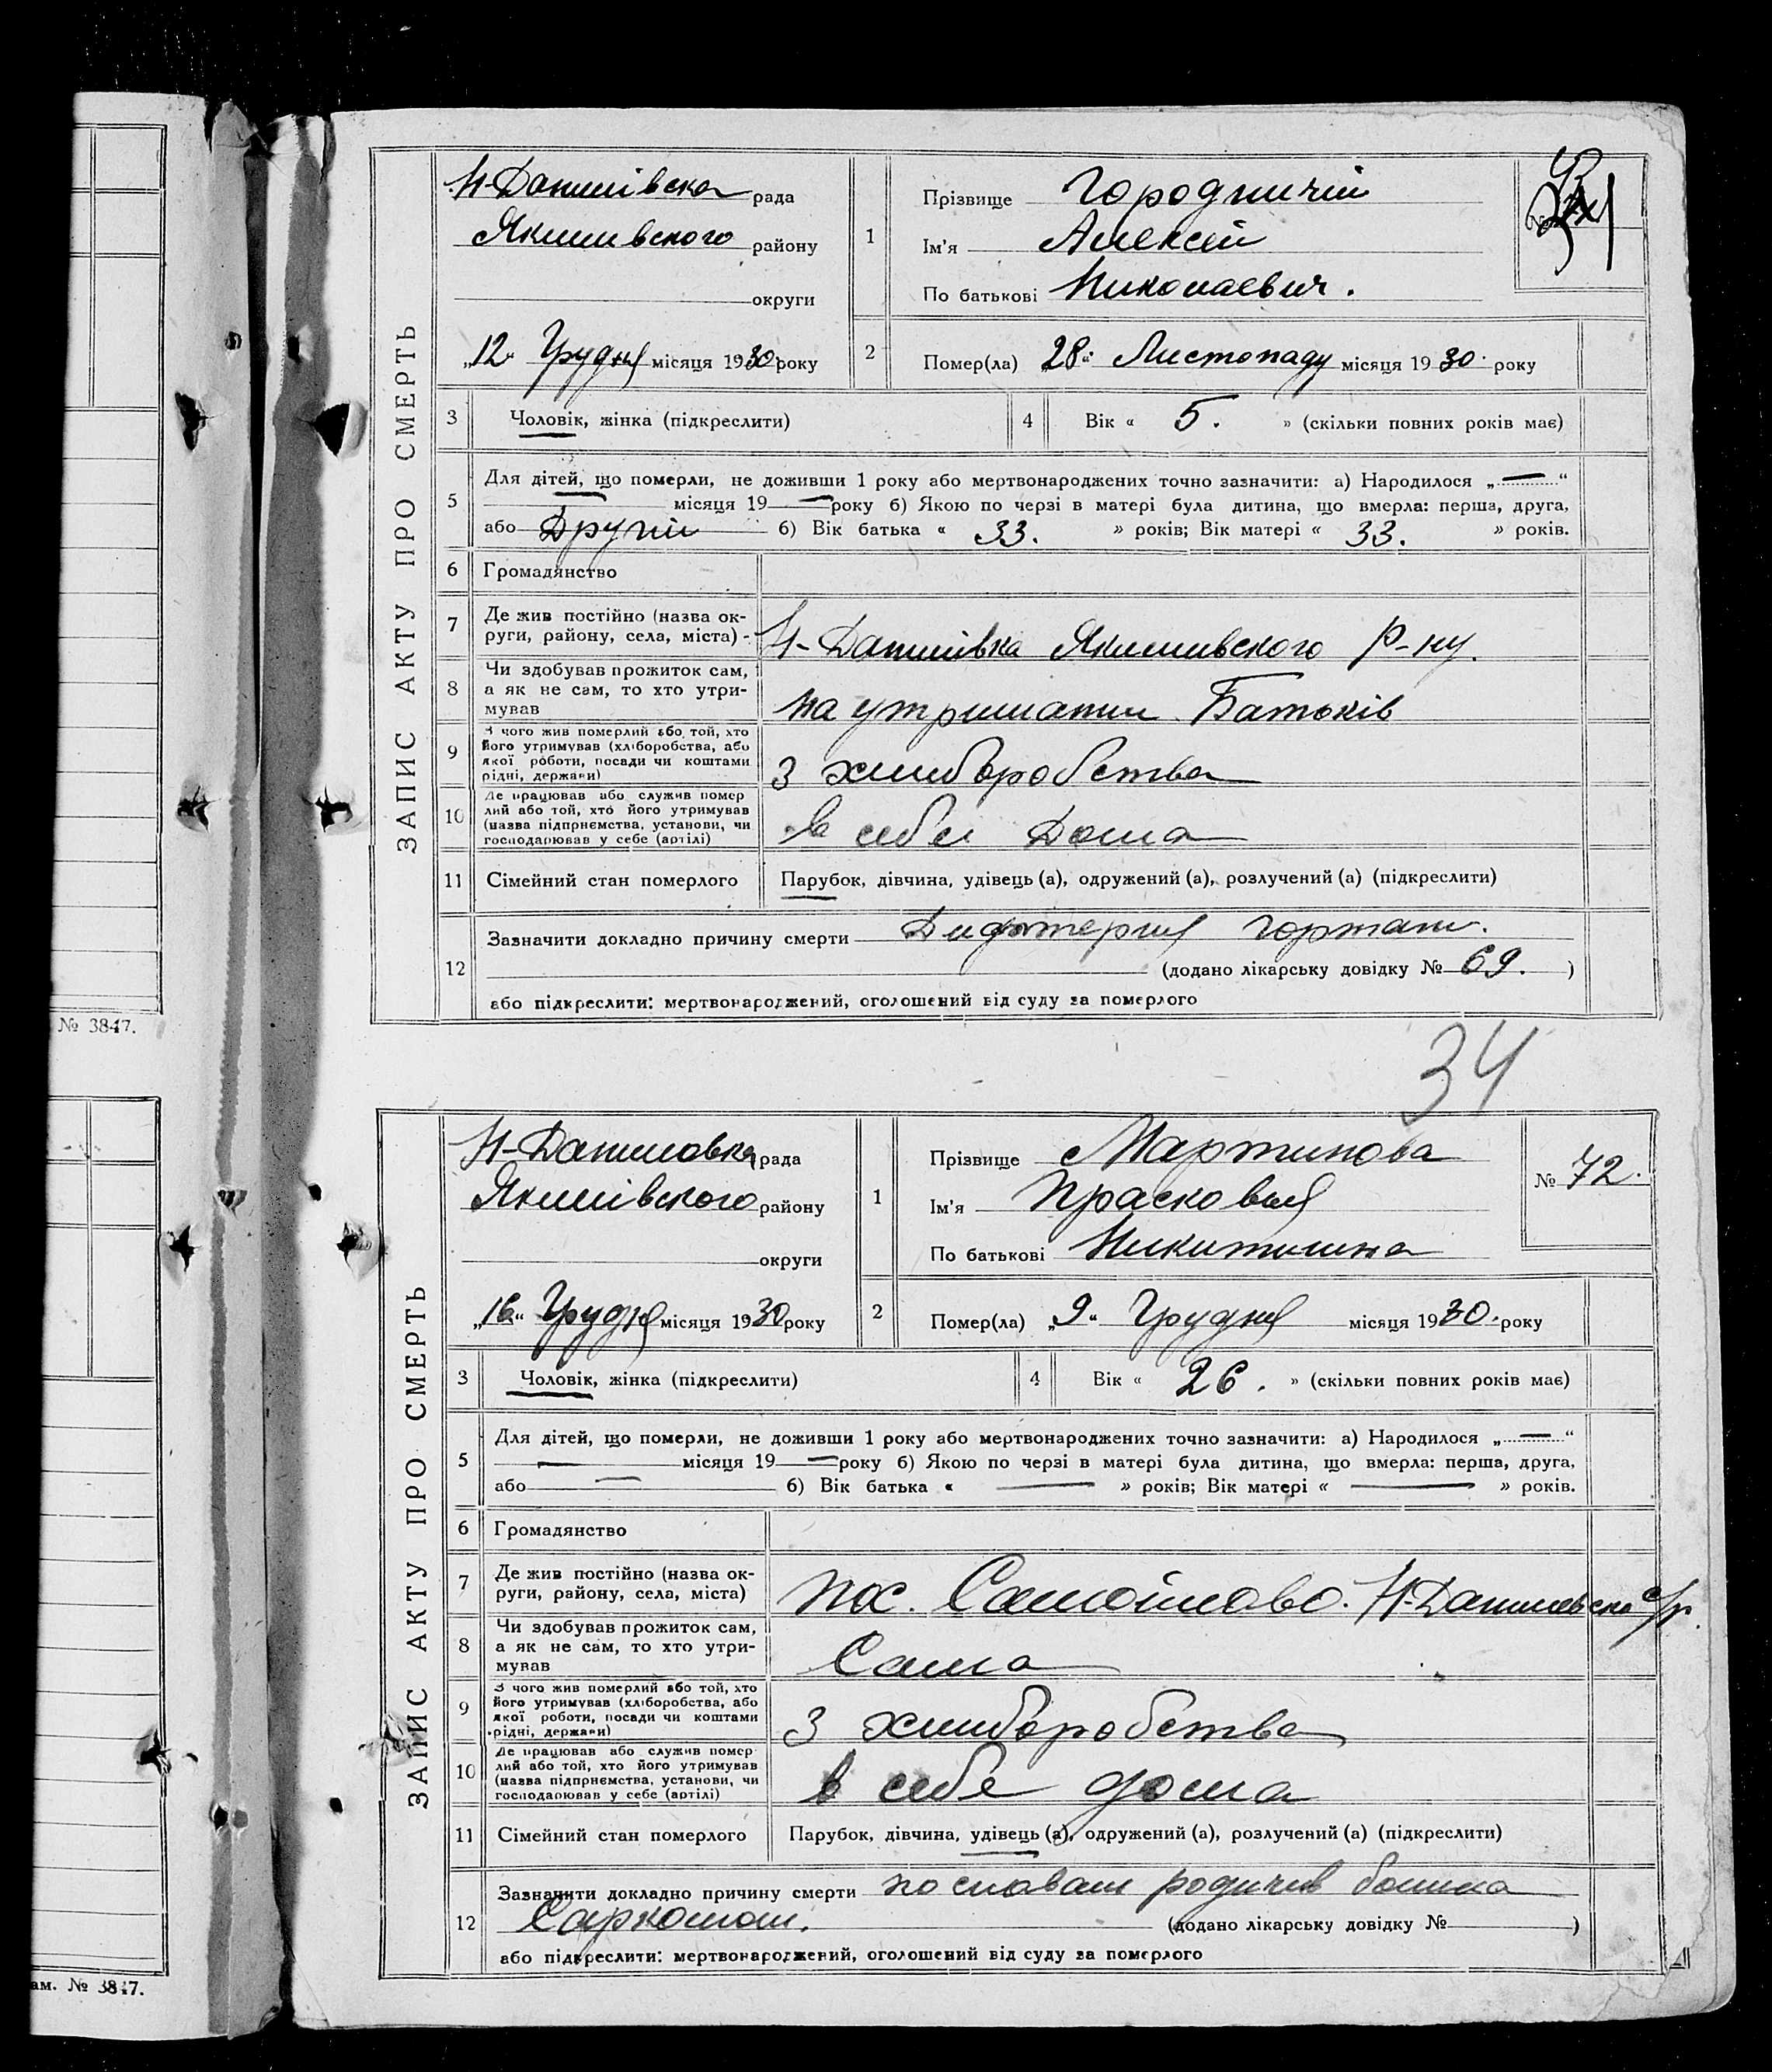 ЗАПИС АКТУ ПРО СМЕРТЬ
Н-Данилівска рада
Якимивского району
округи
„12„ Грудня місяця 1930 року
1
Прізвище Городничій
Ім'я Алексій
По батькові Николаевич.
№
2
Помер(ла) „28„ Листопаду місяця 1930 року
3 Чоловік, жінка (підкреслити)
4 Вік « 5. » (скільки повних років має)
5 Для дітей, що померли, не доживши 1 року або мертвонароджених точно зазначити: а) Народилося „—“
місяця 19— року б) Якою по черзі в матері була дитина, що вмерла: перша, друга,
або Другій б) Вік батька « 33. » років; Вік матері « 33. » років.
6 Громадянство
7 Де жив постійно (назва ок-
руги, району, села, міста) - Н-Данилівка Якимивского Р-ну.
8 Чи здобував прожиток сам,
а як не сам, то хто утри-
мував на утриманни Батьків
9 З чого жив померлий або той, хто
його утримував (хліборобства, або
якої роботи, посади чи коштами
рідні, держави) З хлиборобства
10 Де працював або служив помер
лий або той, хто його утримував
(назва підприємства, установи, чи
господарював у себе (артілі) в себе Дома
11 Сімейний стан померлого Парубок, дівчина, удівець (а), одружений (а), розлучений (а) (підкреслити)
12 Зазначити докладно причину смерти Дифтерия гортани.
(додано лікарську довідку № 69. )
або підкреслити: мертвонароджений, оголошений від суду за померлого
№ 3847.
34
ЗАПИС АКТУ ПРО СМЕРТЬ
Н-Даниловка рада
Якимівского району
округи
„16“ Грудня місяця 1930 року
1
Прізвище Мартинова
Ім'я Прасковья
По батькові Никитишна
№ 72.
2
Помер(ла) „9“ Грудня місяця 1930. року
3 Чоловік, жінка (підкреслити)
4 Вік « 26. » (скільки повних років має)
5 Для дітей, що померли, не доживши 1 року або мертвонароджених точно зазначити: а) Народилося „—“
— місяця 19— року б) Якою по черзі в матері була дитина, що вмерла: перша, друга,
або — б) Вік батька « — » років; Вік матері « — » років.
6 Громадянство
7 Де жив постійно (назва ок-
руги, району, села, міста) пос. Самойлово. Н-Данилевска с/р.
8 Чи здобував прожиток сам,
а як не сам, то хто утри-
мував Сама
9 З чого жив померлий або той, хто
його утримував (хліборобства, або
якої роботи, посади чи коштами
рідні, держави) З хлиборобства
10 Де працював або служив помер
лий або той, хто його утримував
(назва підприємства, установи, чи
господарював у себе (артілі) в себе дома
11 Сімейний стан померлого Парубок, дівчина, удівець (а), одружений (а), розлучений (а) (підкреслити)
12 Зазначити докладно причину смерти по словам родичив болила
Саркомою. (додано лікарську довідку № )
або підкреслити: мертвонароджений, оголошений від суду за померлого
ам. № 3847.